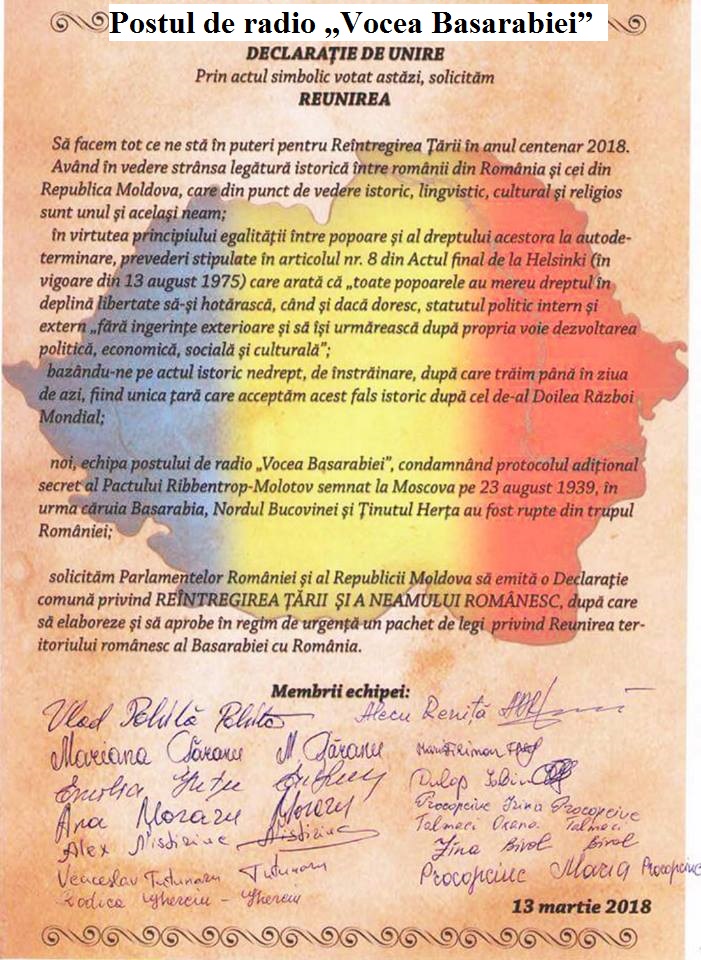 Postul de radio „Vocea Basarabiei”
DECLARAȚIE DE UNIRE
Prin actul simbolic votat astăzi, solicităm
REUNIREA
Să facem tot ce ne stă în puteri pentru Reîntregirea Țării în anul centenar 2018.
Având în vedere strânsa legătură istorică între românii din România și cei din
Republica Moldova, care din punct de vedere istoric, lingvistic, cultural și religios
sunt unul și același neam;
în virtutea principiului egalității între popoare și al dreptului acestora la autode-
terminare, prevederi stipulate în articolul nr. 8 din Actul final de la Helsinki (în
vigoare din 13 august 1975) care arată că „toate popoarele au mereu dreptul în
deplină libertate să-și hotărască, când și dacă doresc, statutul politic intern și
extern „fără ingerințe exterioare și să își urmărească după propria voie dezvoltarea
politică, economică, socială și culturală”;
bazându-ne pe actul istoric nedrept, de înstrăinare, după care trăim până în ziua
de azi, fiind unica țară care acceptăm acest fals istoric după cel de-al Doilea Război
Mondial;
noi, echipa postului de radio „Vocea Basarabiei”, condamnând protocolul adițional
secret al Pactului Ribbentrop-Molotov semnat la Moscova pe 23 august 1939, în
urma căruia Basarabia, Nordul Bucovinei și Ținutul Herța au fost rupte din trupul
României;
solicităm Parlamentelor României și al Republicii Moldova să emită o Declarație
comună privind REÎNTREGIREA ȚĂRII ȘI A NEAMULUI ROMÂNESC, după care
să elaboreze și să aprobe în regim de urgență un pachet de legi privind Reunirea ter-
itoriului românesc al Basarabiei cu România.
Membrii echipei:
Vlad Pohilă
Alecu Reniță
Mariana Țăranu M Țăranu
Emilia
Ana Moraru Moraru
Procopciuc Irina Procopciuc
Talmaci Oxana Talmaci
Alex Nistiriuc Nistiriuc
Jina Bivol Bivol
Veaceslav Tutunaru Tutunaru
Procopciuc Maria Procopciuc
Rodica Gherciu - Gherciu
13 martie 2018